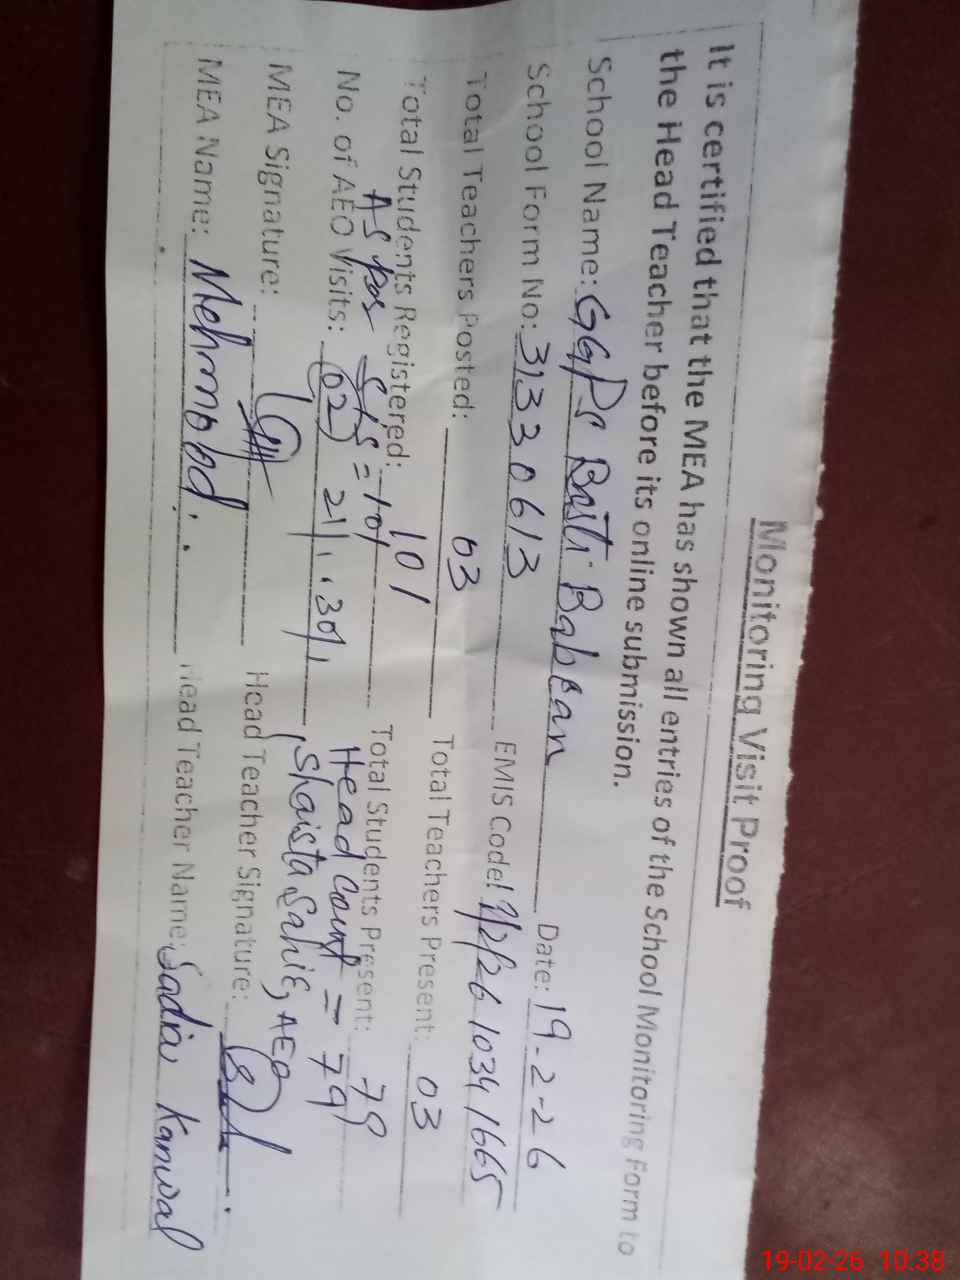 Monitoring Visit Proof
It is certified that the MEA has shown all entries of the School Monitoring Form to
the Head Teacher before its online submission.
School Name: GGPS Basti Babean Date: 19-2-26
School Form No: 31330613 EMIS Code: 1665
Total Teachers Posted: 03 Total Teachers Present: 03
Total Students Registered: 101 Total Students Present: 79
As per S/S = 101 Head count = 79
No. of AEO Visits: (02) Shaista AEO
MEA Signature: Head Teacher Signature:
MEA Name: Mehmood Head Teacher Name: Sadia Kanwal
19-02-26 10:38